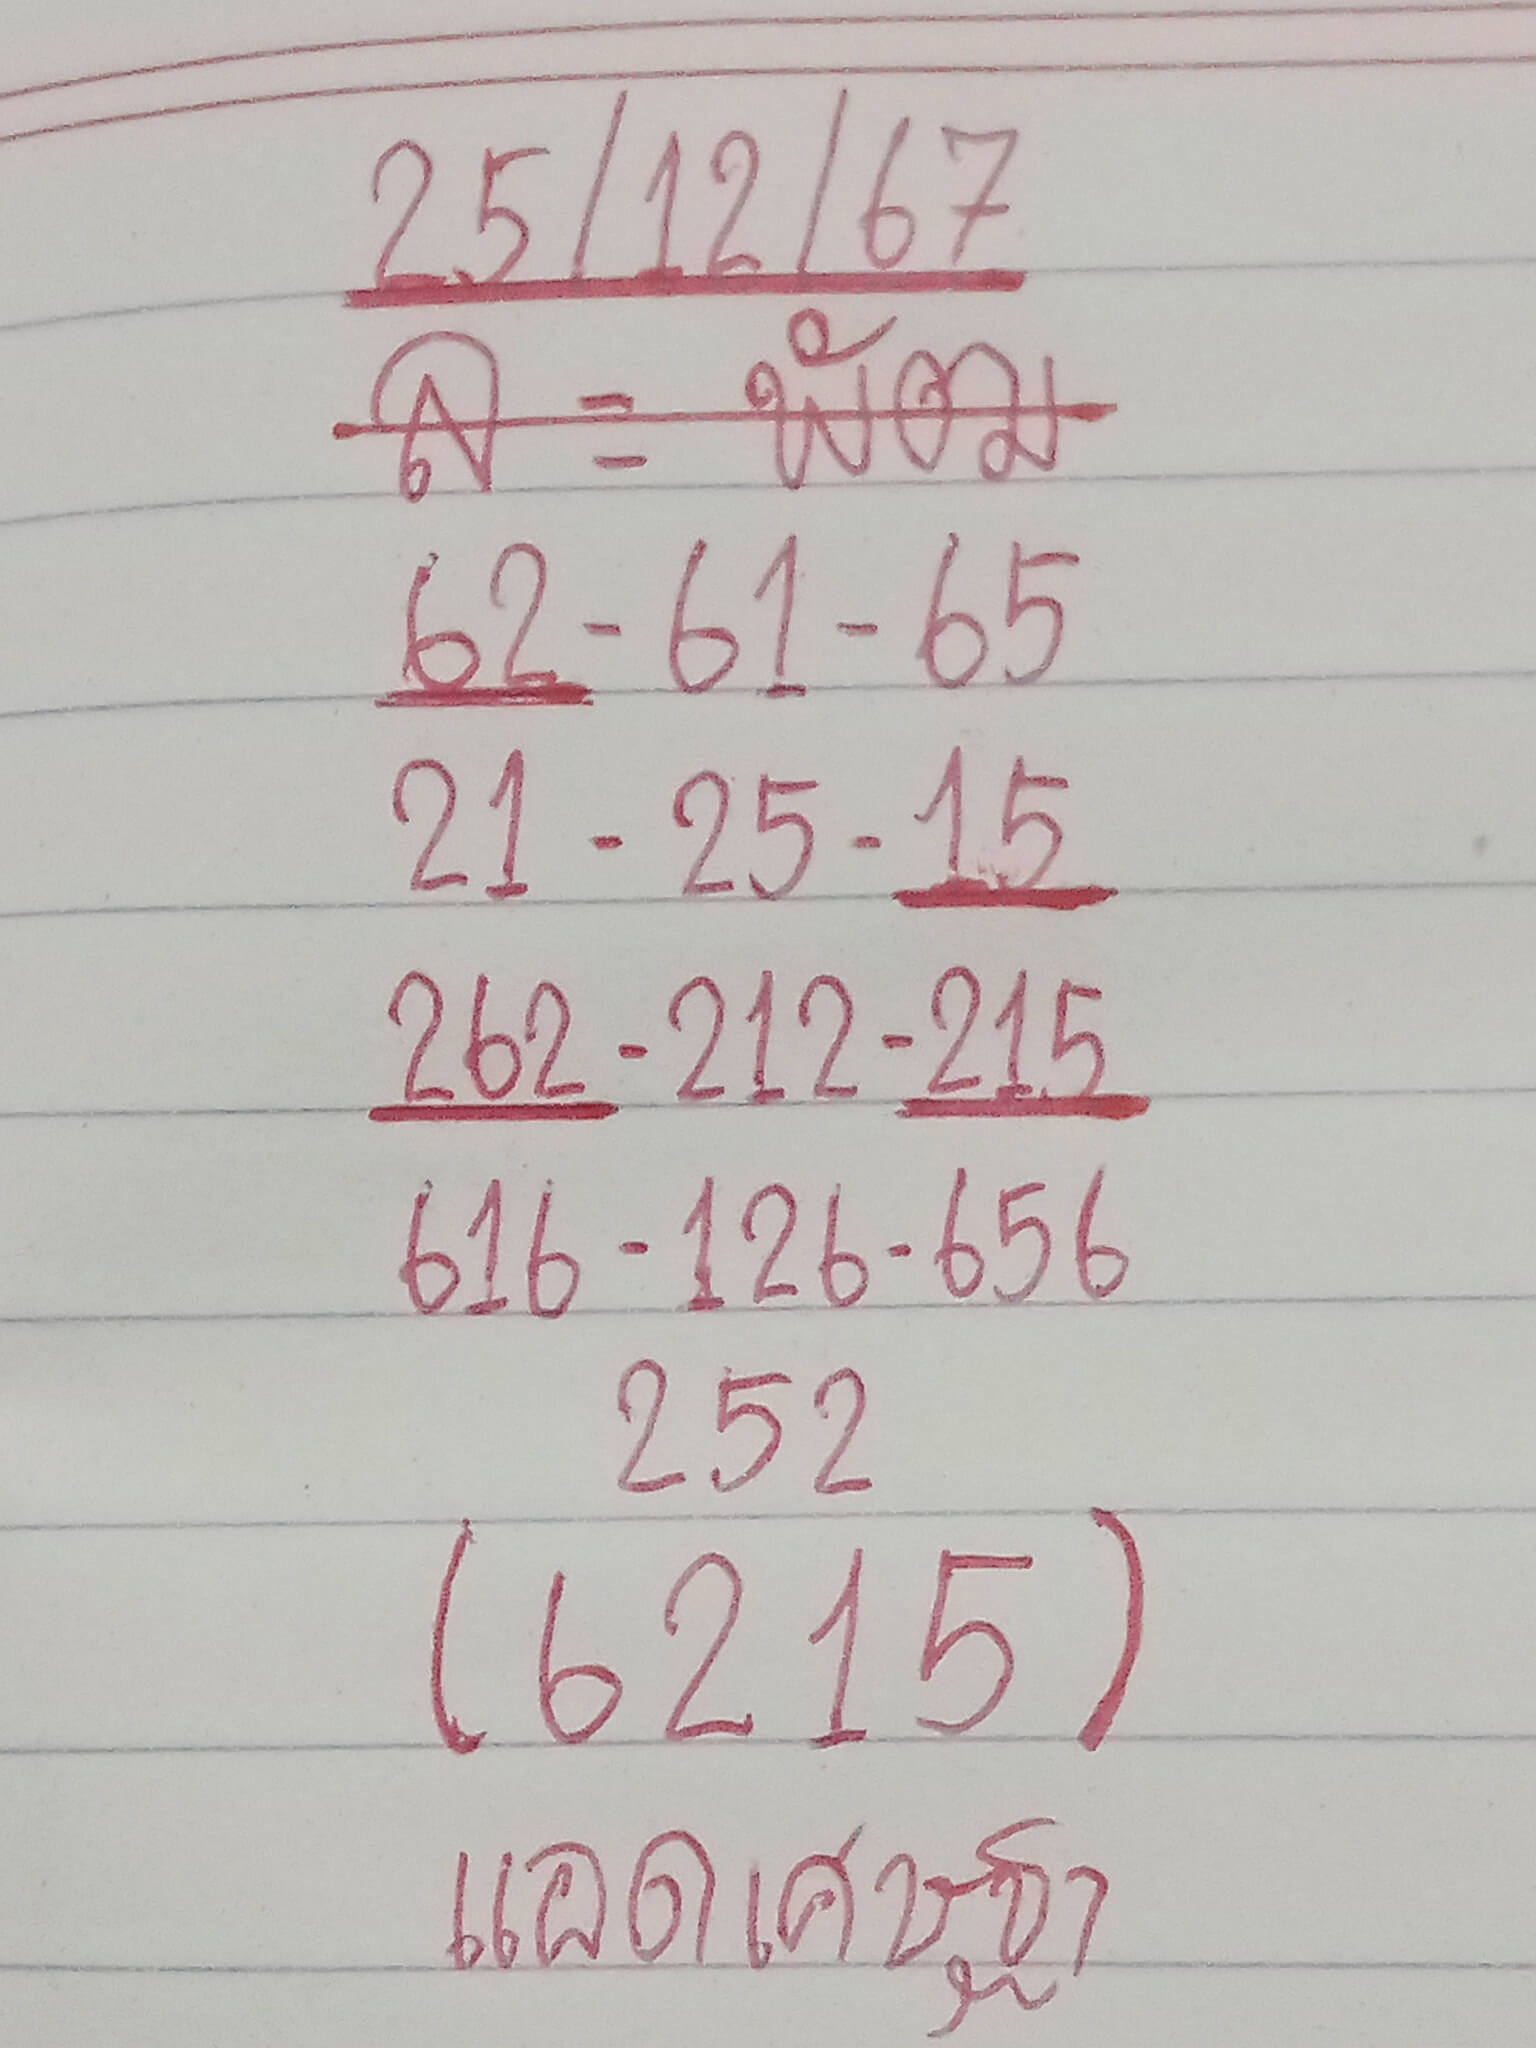 25/12/67
ล = พัฒม
62 - 61 - 65
21 - 25 - 15
262 - 212 - 215
616 - 126 - 656
252
(6215)
แอดเศษฐา